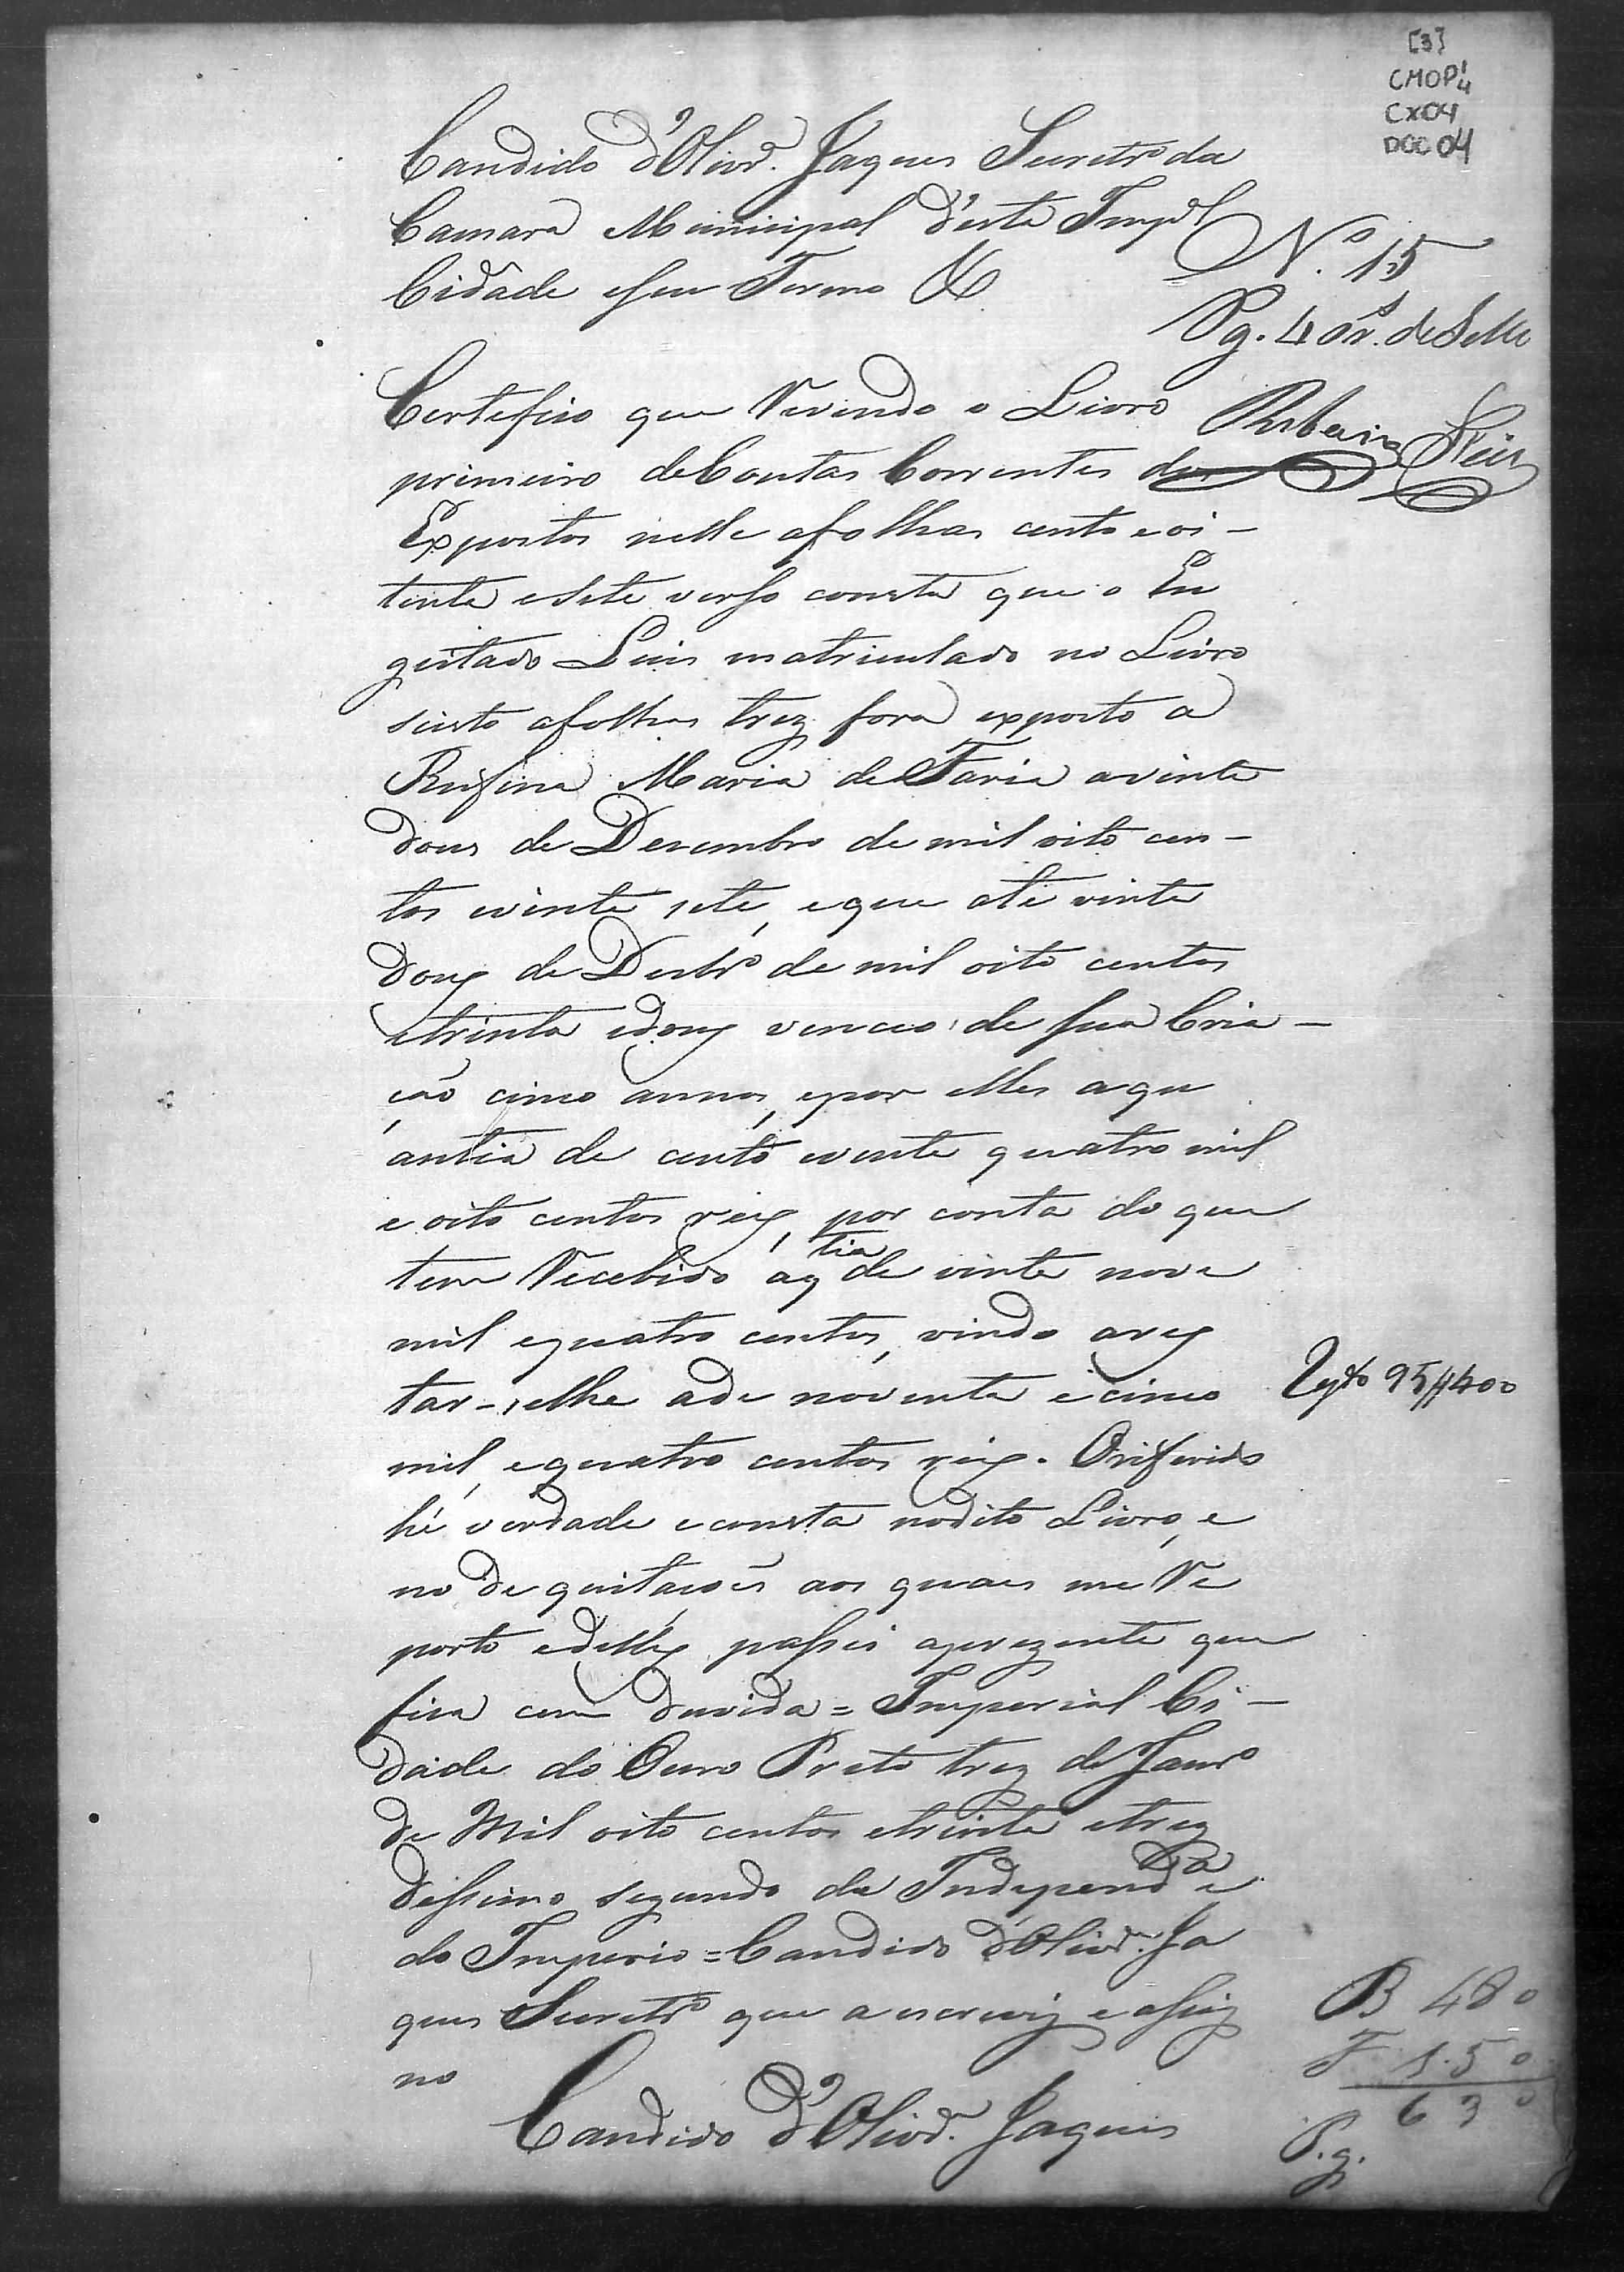 [3]
CMOP¹4
CX04
DOC 04
Candido d'Olivrª. Jaques Secretrº da
Camara Municipal d'esta Impal
Cidade eseu Termo &
Nº. 15
Pg. 40 rs. de Sello
Certefico que Revendo o Livro
primeiro de Contas Correntes dos
Expostos nelle afolhas cento e oi-
tenta esete verso consta que o En
geitado Luis matriculado no Livro
sexto afolhas trez fora exposto a
Rufina Maria de Faria avinte
dous de Dezembro de mil oito cen-
tos evinte sete, eque até vinte
dous de Dezbrº de mil oito centos
etrinta edous venceo de sua Cria-
ção cinco annos, epor elles aqu
antia de cento evinte quatro mil
e oito centos reis, por conta do que
tem Recebido aqtia de vinte nove
mil equatro centos, vindo arres
tar-selhe ade noventa ecinco
mil, equatro centos reis. Oriferido
hé verdade econsta nodito Livro, e
no de quitacoẽs aos quaes me Re
porto edelles passei aprezente que
fica cem duvida = Imperial Ci-
dade do Ouro Preto trez de Janrº
de Mil oito centos etrinta etrez
dessimo segundo da Independca e
do Imperio = Candido d'Olivrª. Ja
ques Secretrº que a escreviz e assig
no
Candido d'Olivrª. Jaques
Ribeiro
Resto 95//400
B 480
F 150
630
P.g.